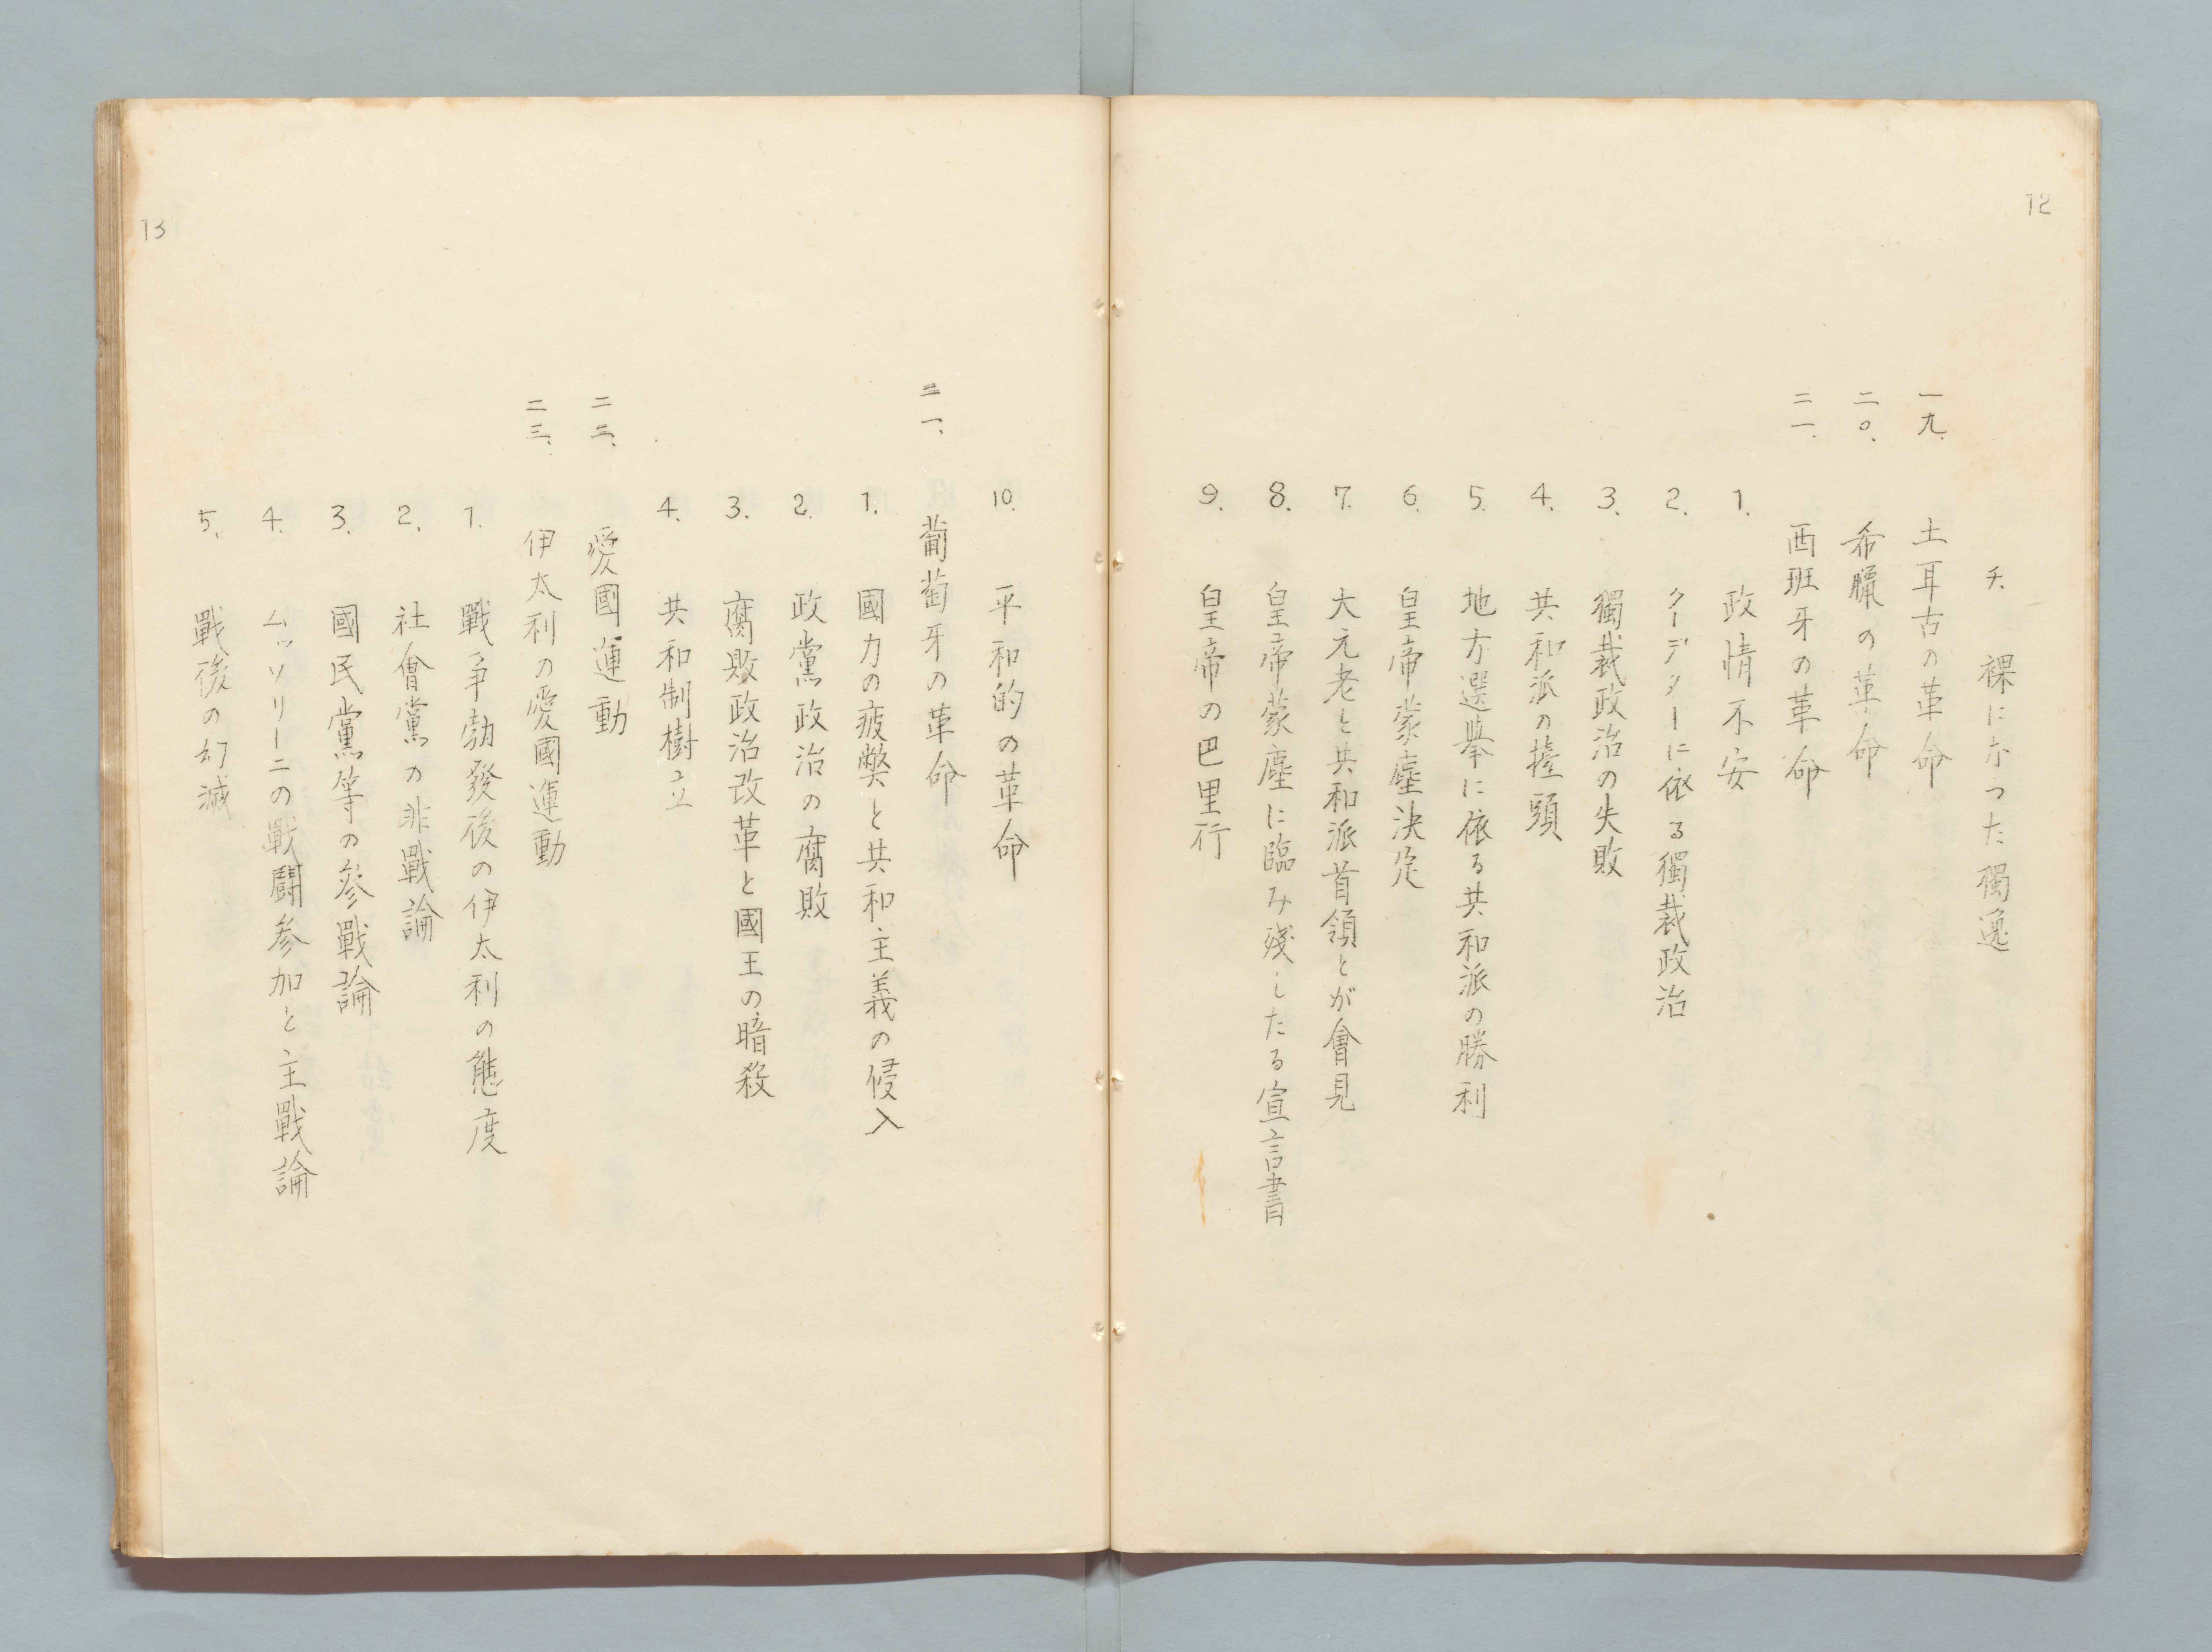 12
チ. 裸になつた獨逸
一九. 土耳古の革命
二〇. 希臘の革命
二一. 西班牙の革命
1. 政情不安
2. クーデターに依る獨裁政治
3. 獨裁政治の失敗
4. 共和派の擡頭
5. 地方選擧に依る共和派の勝利
6. 皇帝蒙塵決定
7. 大元老と共和派首領とが會見
8. 皇帝蒙塵に臨み殘したる宣言書
9. 皇帝の巴里行
10. 平和的の革命
二一、 葡萄牙の革命
1. 國力の疲弊と共和主義の侵入
2. 政黨政治の腐敗
3. 腐敗政治改革と國王の暗殺
4. 共和制樹立
二二、 愛國運動
二三、 伊太利の愛國運動
1. 戰爭勃發後の伊太利の態度
2. 社會黨の非戰論
3. 國民黨等の參戰論
4. ムッソリーニの戰鬪参加と主戰論
5. 戰後の幻滅
13